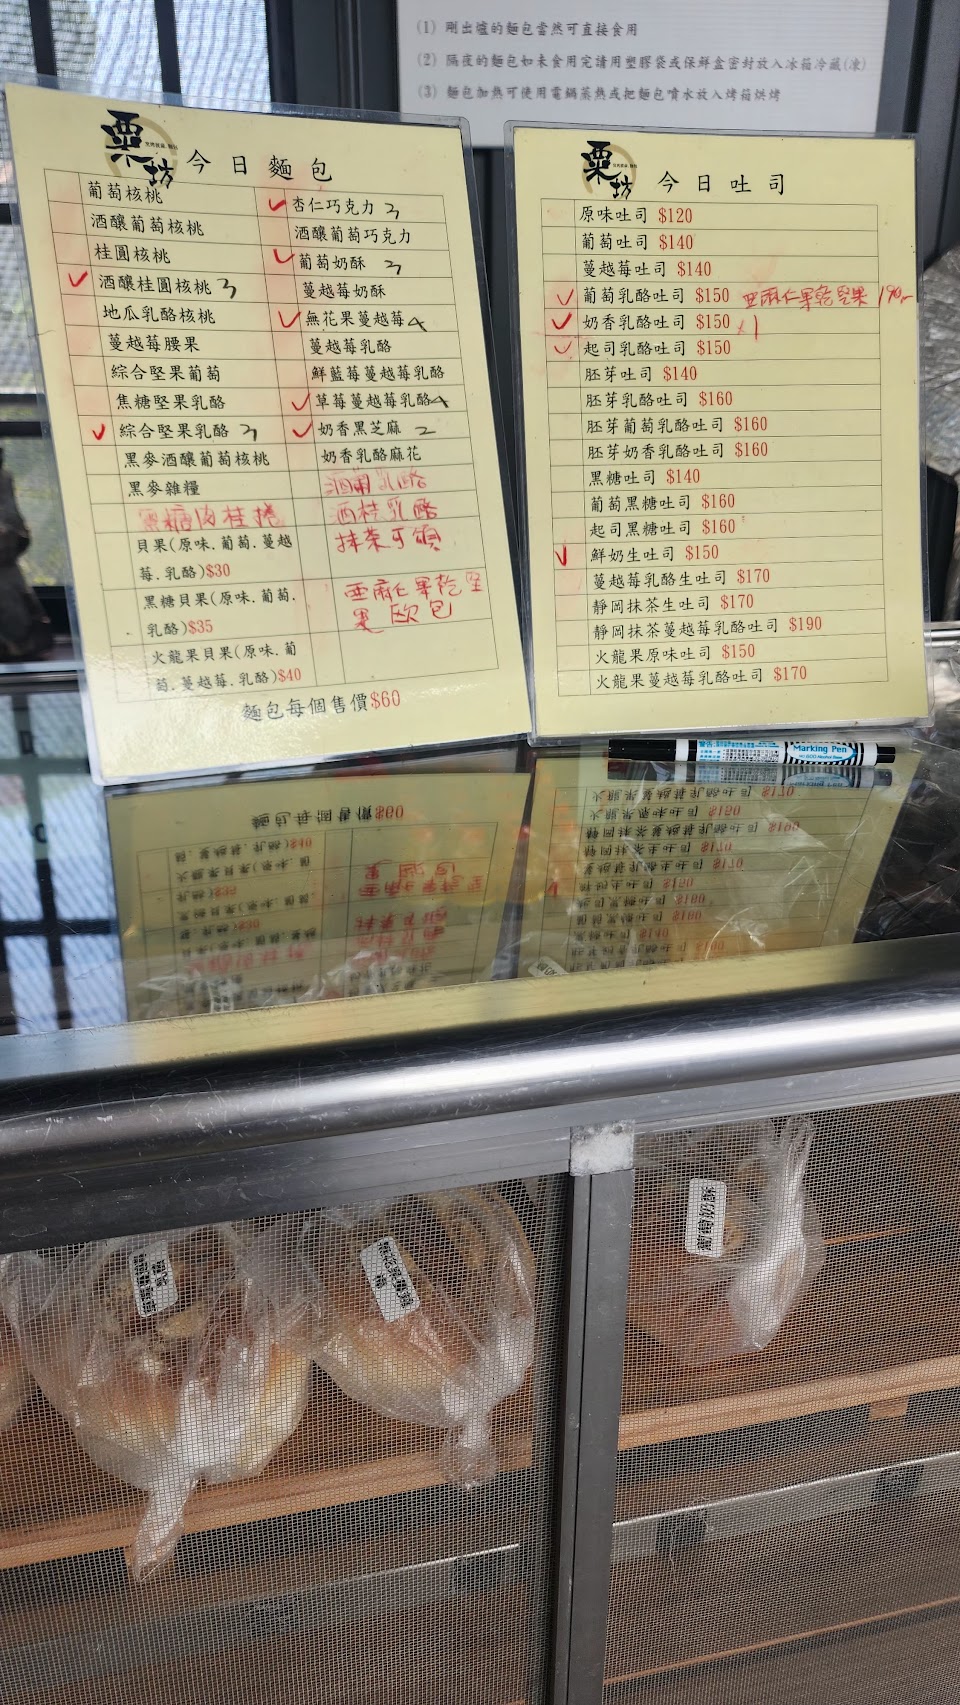 (1) 剛出爐的麵包當然可直接食用
(2) 隔夜的麵包如未食用完請用塑膠袋或保鮮盒密封放入冰箱冷藏(凍)
(3) 麵包加熱可使用電鍋蒸熱或把麵包噴水放入烤箱烘烤
粟坊
今日麵包
葡萄核桃
酒釀葡萄核桃
桂圓核桃
✓ 酒釀桂圓核桃 3
地瓜乳酪核桃
蔓越莓腰果
綜合堅果葡萄
焦糖堅果乳酪
✓ 綜合堅果乳酪 3
黑麥酒釀葡萄核桃
黑麥雜糧
黑糖肉桂捲
貝果(原味.葡萄.蔓越
莓.乳酪)$30
黑糖貝果(原味.葡萄.
乳酪)$35
火龍果貝果(原味.葡
萄.蔓越莓.乳酪)$40
✓ 杏仁巧克力 3
酒釀葡萄巧克力
✓ 葡萄奶酥 3
蔓越莓奶酥
✓ 無花果蔓越莓 4
蔓越莓乳酪
鮮藍莓蔓越莓乳酪
✓ 草莓蔓越莓乳酪 4
✓ 奶香黑芝麻 2
奶香乳酪麻花
酒葡乳酪
酒桂乳酪
抹茶可頌
亞麻仁果乾堅
果 歐包
麵包每個售價$60
粟坊
今日吐司
原味吐司 $120
葡萄吐司 $140
蔓越莓吐司 $140
✓ 葡萄乳酪吐司 $150 亞麻仁果乾堅果 190
✓ 奶香乳酪吐司 $150 x1
✓ 起司乳酪吐司 $150
胚芽吐司 $140
胚芽乳酪吐司 $160
胚芽葡萄乳酪吐司 $160
胚芽奶香乳酪吐司 $160
黑糖吐司 $140
葡萄黑糖吐司 $160
起司黑糖吐司 $160
✓ 鮮奶生吐司 $150
蔓越莓乳酪生吐司 $170
靜岡抹茶生吐司 $170
靜岡抹茶蔓越莓乳酪吐司 $190
火龍果原味吐司 $150
火龍果蔓越莓乳酪吐司 $170
Marking Pen
葡萄奶酥